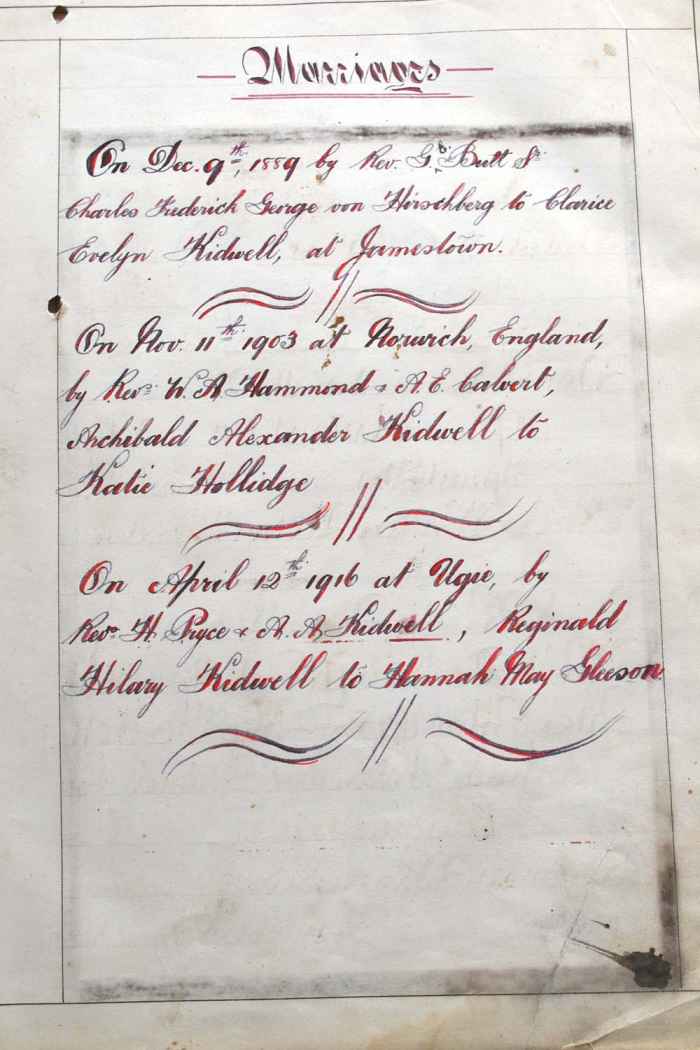 — Marriages —
On Dec. 9th, 1889 by Rev. G. B. Butt Sr
Charles Frederick George von Hirschberg to Clarice
Evelyn Kidwell, at Jamestown.
On Nov. 11th 1903 at Norwich, England,
by Revs. W. A. Hammond & A. E. Calvert,
Archibald Alexander Kidwell to
Katie Hollidge
On April 12th 1916 at Ugie, by
Revs. H. Pryce & A. A. Kidwell, Reginald
Hilary Kidwell to Hannah May Gleeson